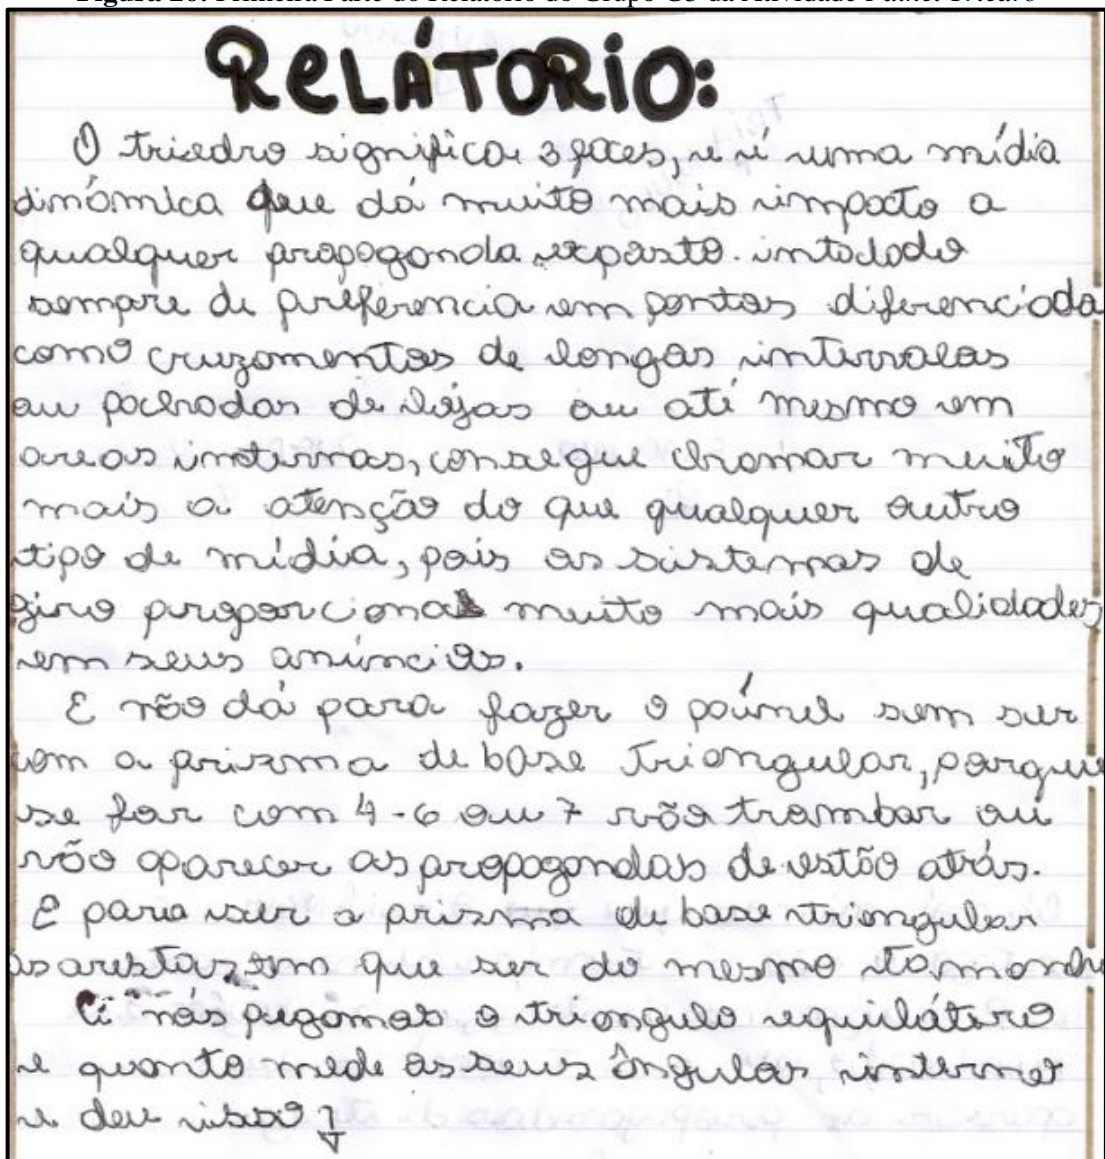 RELÁTORIO:
O triedro significa 3 faces, e é uma mídia
dinâmica que dá muito mais impacto a
qualquer propaganda exposto. intalado
sempre de preferencia em pontos diferenciada
como cruzamentos de longos intervalos
ou fachadas de lojas ou até mesmo em
areas internas, consegue chamar muito
mais a atenção do que qualquer outro
tipo de mídia, pois os sistemas de
giro proporciona muito mais qualidades
em seus anúncios.
E não dá para fazer o paínel sem ser
com a prizma de base triangular, porque
se for com 4-6 ou 7 vão trombar ou
vão aparecer as propagandas de estão atrás.
E para ser a prizma de base triangular
as arestas tem que ser do mesmo tamanho
nós pegamos o triangulo equilátero
e quanto mede os seus ângulos internos
e deu isso?